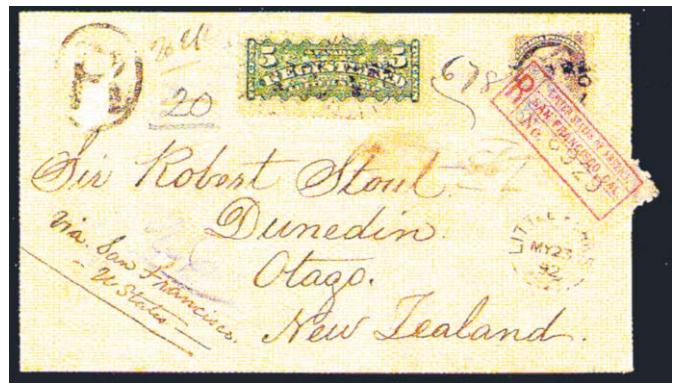 R
20
5 REGISTERED 5
678
R
UNITED STATES OF AMERICA
SAN FRANCISCO, CAL.
No.
Sir Robert Stout
Dunedin.
Otago.
New Zealand.
via. San Francisco.
U States
MY 23
92